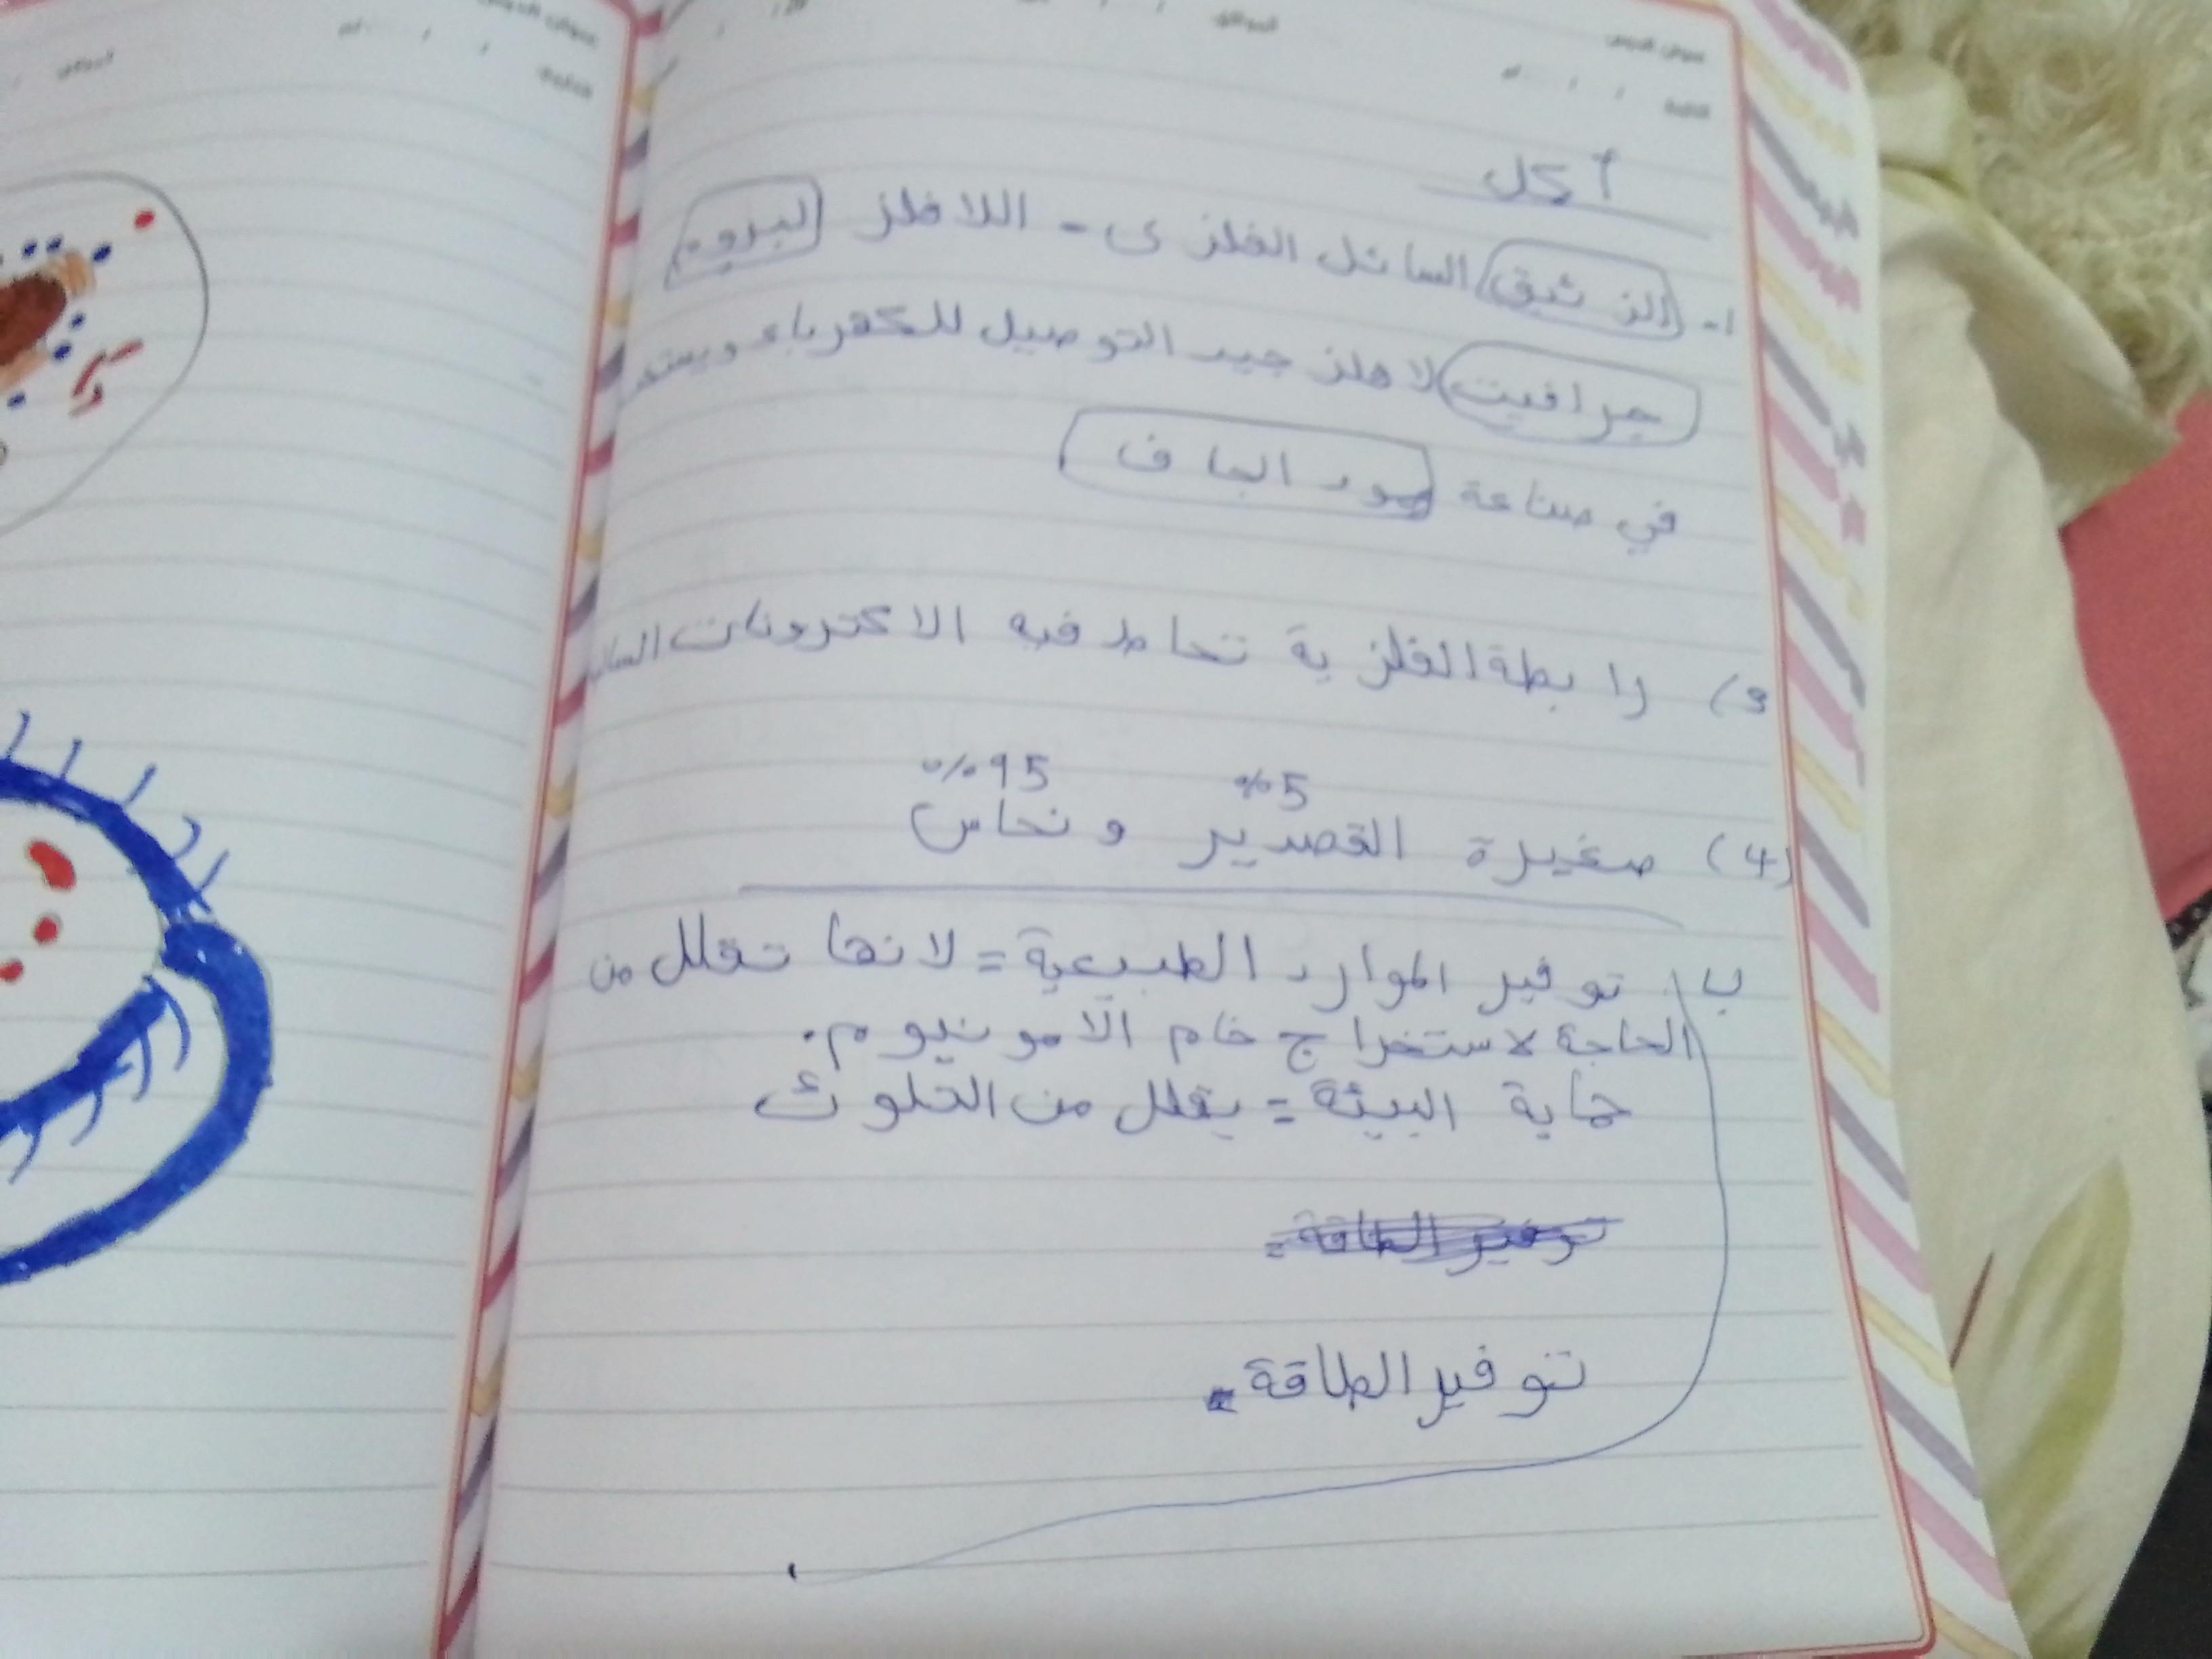 عنوان الدرس
الموافق
التاريخ / / م
أ كل
1- الزئبق السائل الفلزى - اللا فلز البروم
جرافيت لا فلز جيد التوصيل للكهرباء ويستخد
في صناعة عمود الجاف
3) رابطة الفلزية تحاط فيه الاكترونات السال
%5 %95
(4) صغيرة القصدير و نحاس
ب/ توفير الموارد الطبيعية = لانها تقلل من
الحاجة لاستخراج خام الآمونيوم.
حماية البيئة = يقلل من التلوث
توفير الطاقة =
توفير الطاقة